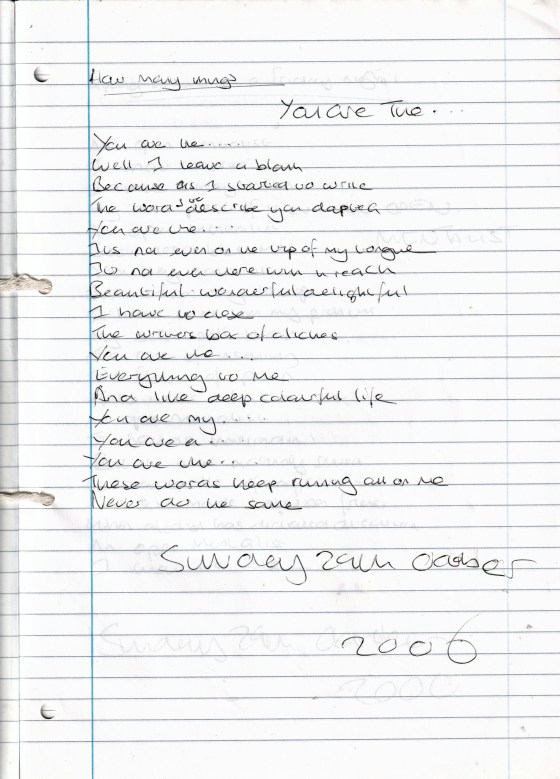 How many things
You are The...
You are the.....
Well I leave a blank
Because as I started to write
The words to describe you dapted
You are the.....
Its not even on the tip of my tongue
Its not even there within reach
Beautiful wonderful delightful
I have to close
The writers box of cliches
You are the....
Everything to me
And like deep colourful life
You are my.....
You are a...
You are the...
These words keep running out on me
Never do the same
Sunday 29th October
2006